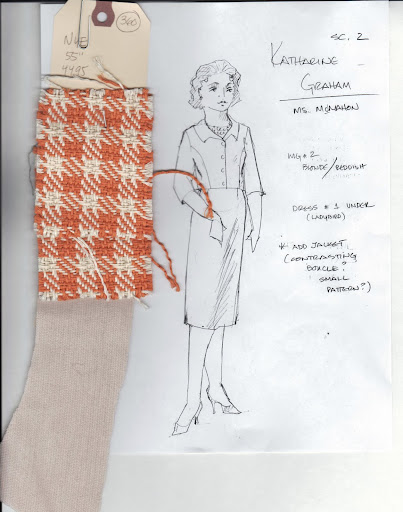 360
55"
SC. 2
KATHARINE
GRAHAM
MS. MCMAHON
WIG #2
BLONDE/REDDISH
DRESS #1 UNDER
(LADYBIRD)
* ADD JACKET
(CONTRASTING
BOUCLE?
SMALL
PATTERN?)